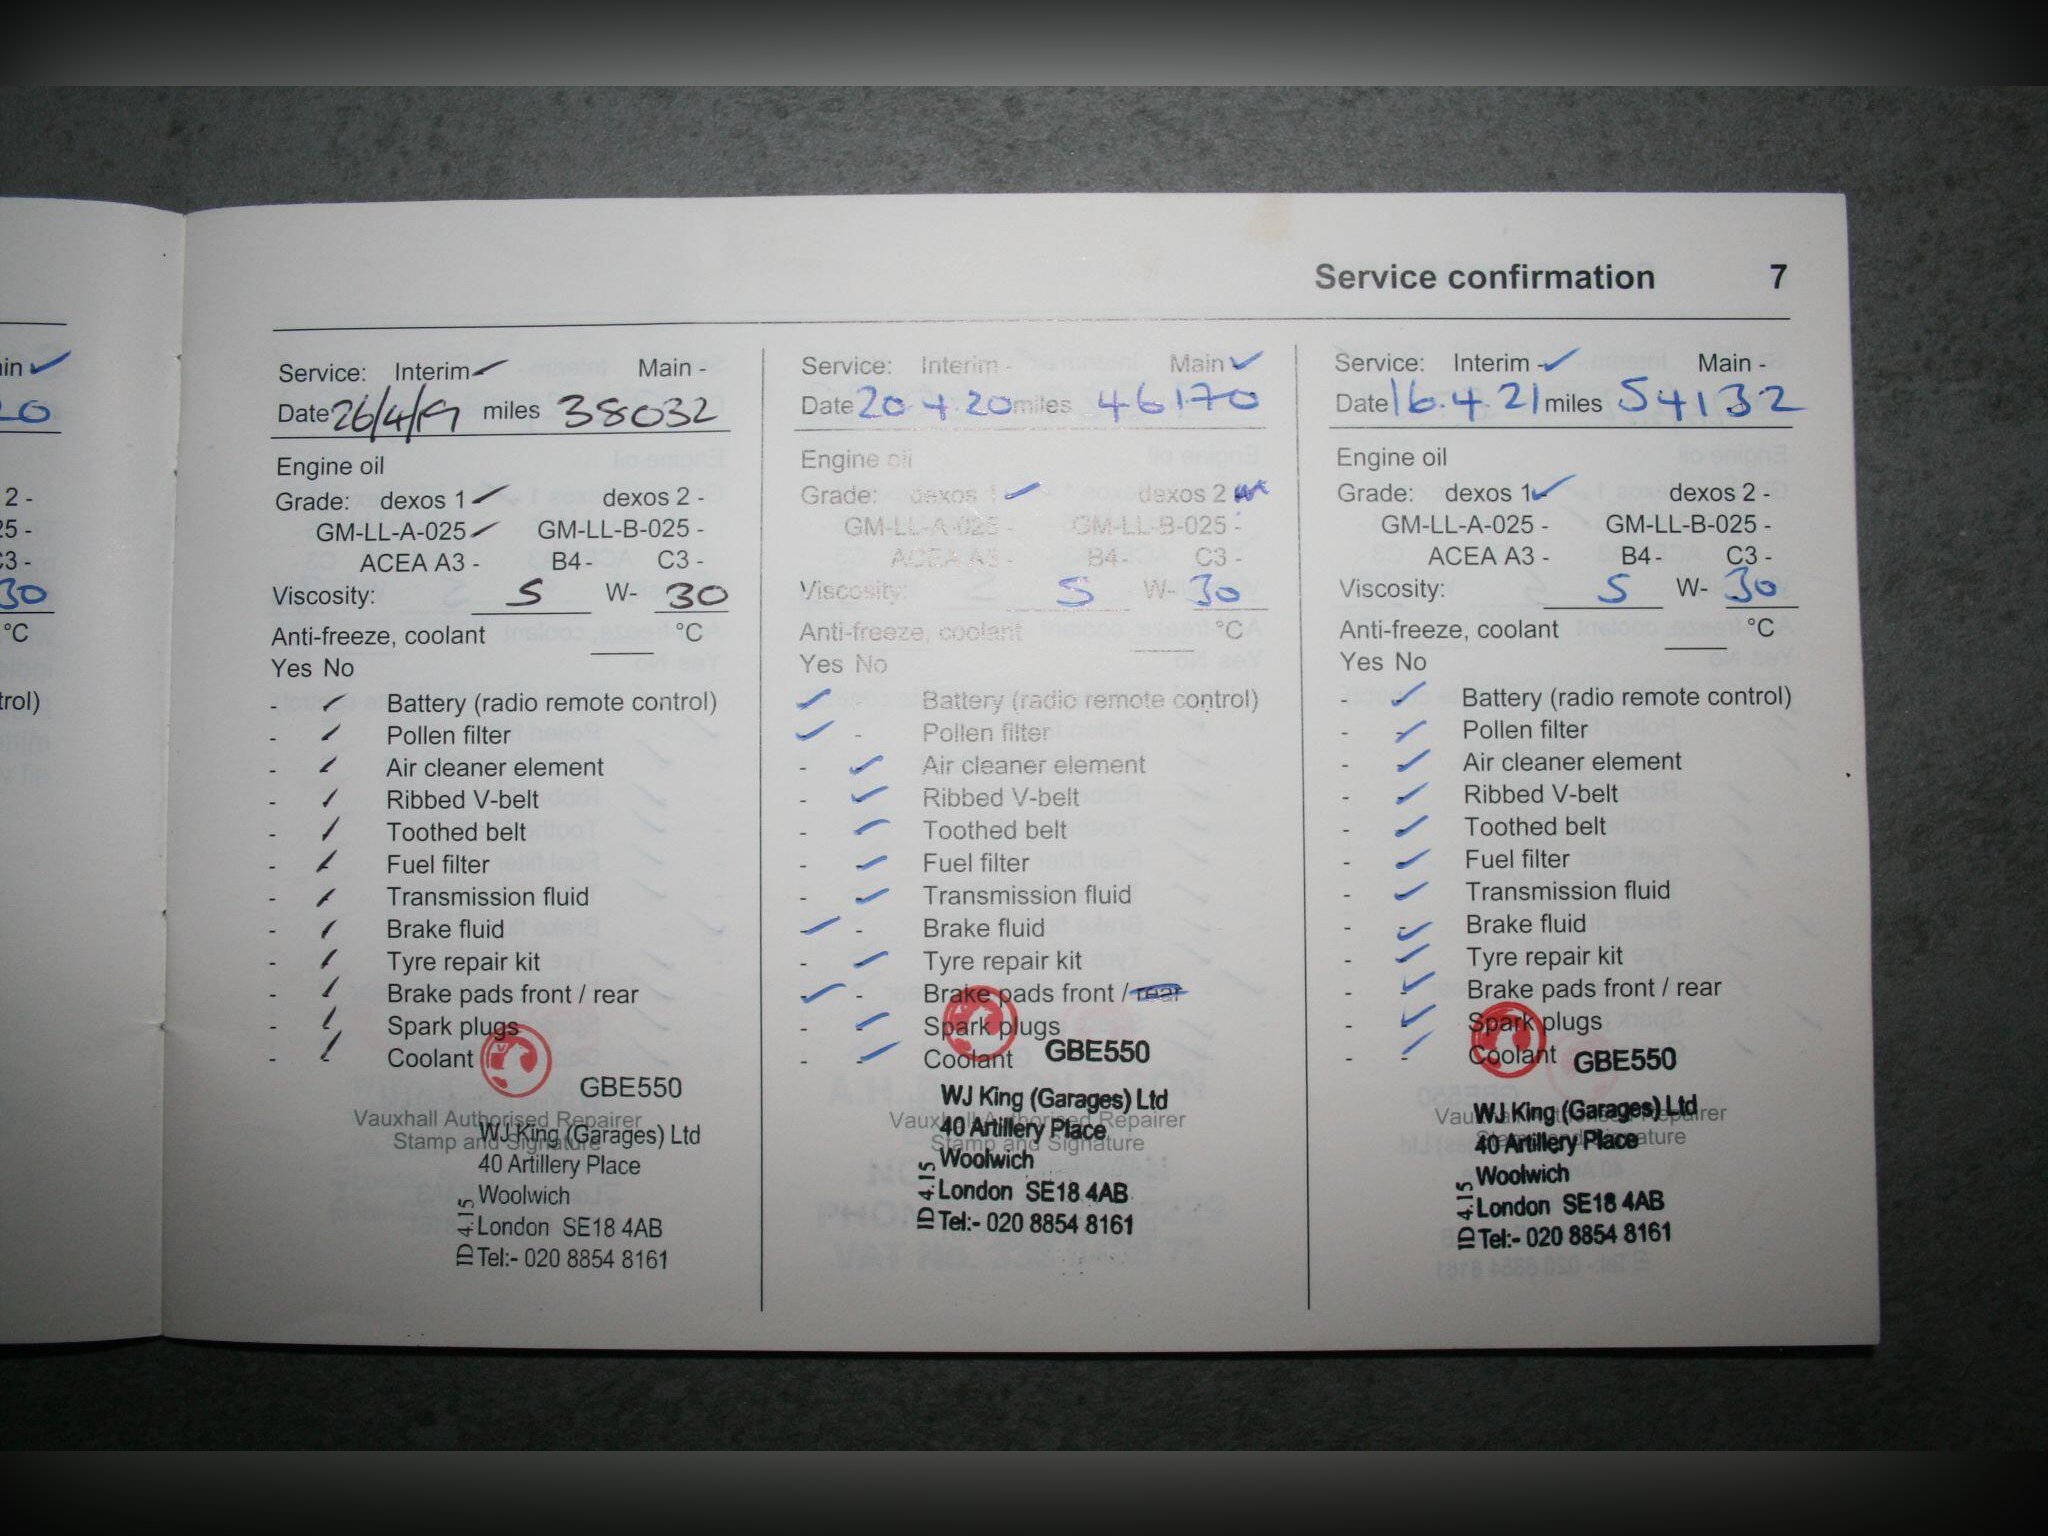 Service confirmation 7
ain ✓
20
2 -
25 -
C3 -
30
°C
trol)
Service: Interim ✓ Main -
Date 26/4/19 miles 38032
Engine oil
Grade: dexos 1 ✓ dexos 2 -
GM-LL-A-025 ✓ GM-LL-B-025 -
ACEA A3 - B4 - C3 -
Viscosity: 5 W- 30
Anti-freeze, coolant °C
Yes No
- ✓ Battery (radio remote control)
- ✓ Pollen filter
- ✓ Air cleaner element
- ✓ Ribbed V-belt
- ✓ Toothed belt
- ✓ Fuel filter
- ✓ Transmission fluid
- ✓ Brake fluid
- ✓ Tyre repair kit
- ✓ Brake pads front / rear
- ✓ Spark plugs
- ✓ Coolant
GBE550
Vauxhall Authorised Repairer
Stamp and Signature
WJ King (Garages) Ltd
40 Artillery Place
Woolwich
London SE18 4AB
Tel:- 020 8854 8161
ID 4.15
Service: Interim - Main ✓
Date 20 4 20 miles 46170
Engine oil
Grade: dexos 1 ✓ dexos 2
GM-LL-A-025 - GM-LL-B-025 -
ACEA A3 - B4 - C3 -
Viscosity: 5 W- 30
Anti-freeze, coolant °C
Yes No
✓ - Battery (radio remote control)
✓ - Pollen filter
- ✓ Air cleaner element
- ✓ Ribbed V-belt
- ✓ Toothed belt
- ✓ Fuel filter
- ✓ Transmission fluid
✓ - Brake fluid
- ✓ Tyre repair kit
✓ - Brake pads front / rear
- ✓ Spark plugs
- ✓ Coolant
GBE550
Vauxhall Authorised Repairer
Stamp and Signature
WJ King (Garages) Ltd
40 Artillery Place
Woolwich
London SE18 4AB
Tel:- 020 8854 8161
ID 4.15
Service: Interim ✓ Main -
Date 16.4.21 miles 54132
Engine oil
Grade: dexos 1 ✓ dexos 2 -
GM-LL-A-025 - GM-LL-B-025 -
ACEA A3 - B4 - C3 -
Viscosity: 5 W- 30
Anti-freeze, coolant °C
Yes No
- ✓ Battery (radio remote control)
- ✓ Pollen filter
- ✓ Air cleaner element
- ✓ Ribbed V-belt
- ✓ Toothed belt
- ✓ Fuel filter
- ✓ Transmission fluid
- ✓ Brake fluid
- ✓ Tyre repair kit
- ✓ Brake pads front / rear
- ✓ Spark plugs
- ✓ Coolant
GBE550
Vauxhall Authorised Repairer
Stamp and Signature
WJ King (Garages) Ltd
40 Artillery Place
Woolwich
London SE18 4AB
Tel:- 020 8854 8161
ID 4.15